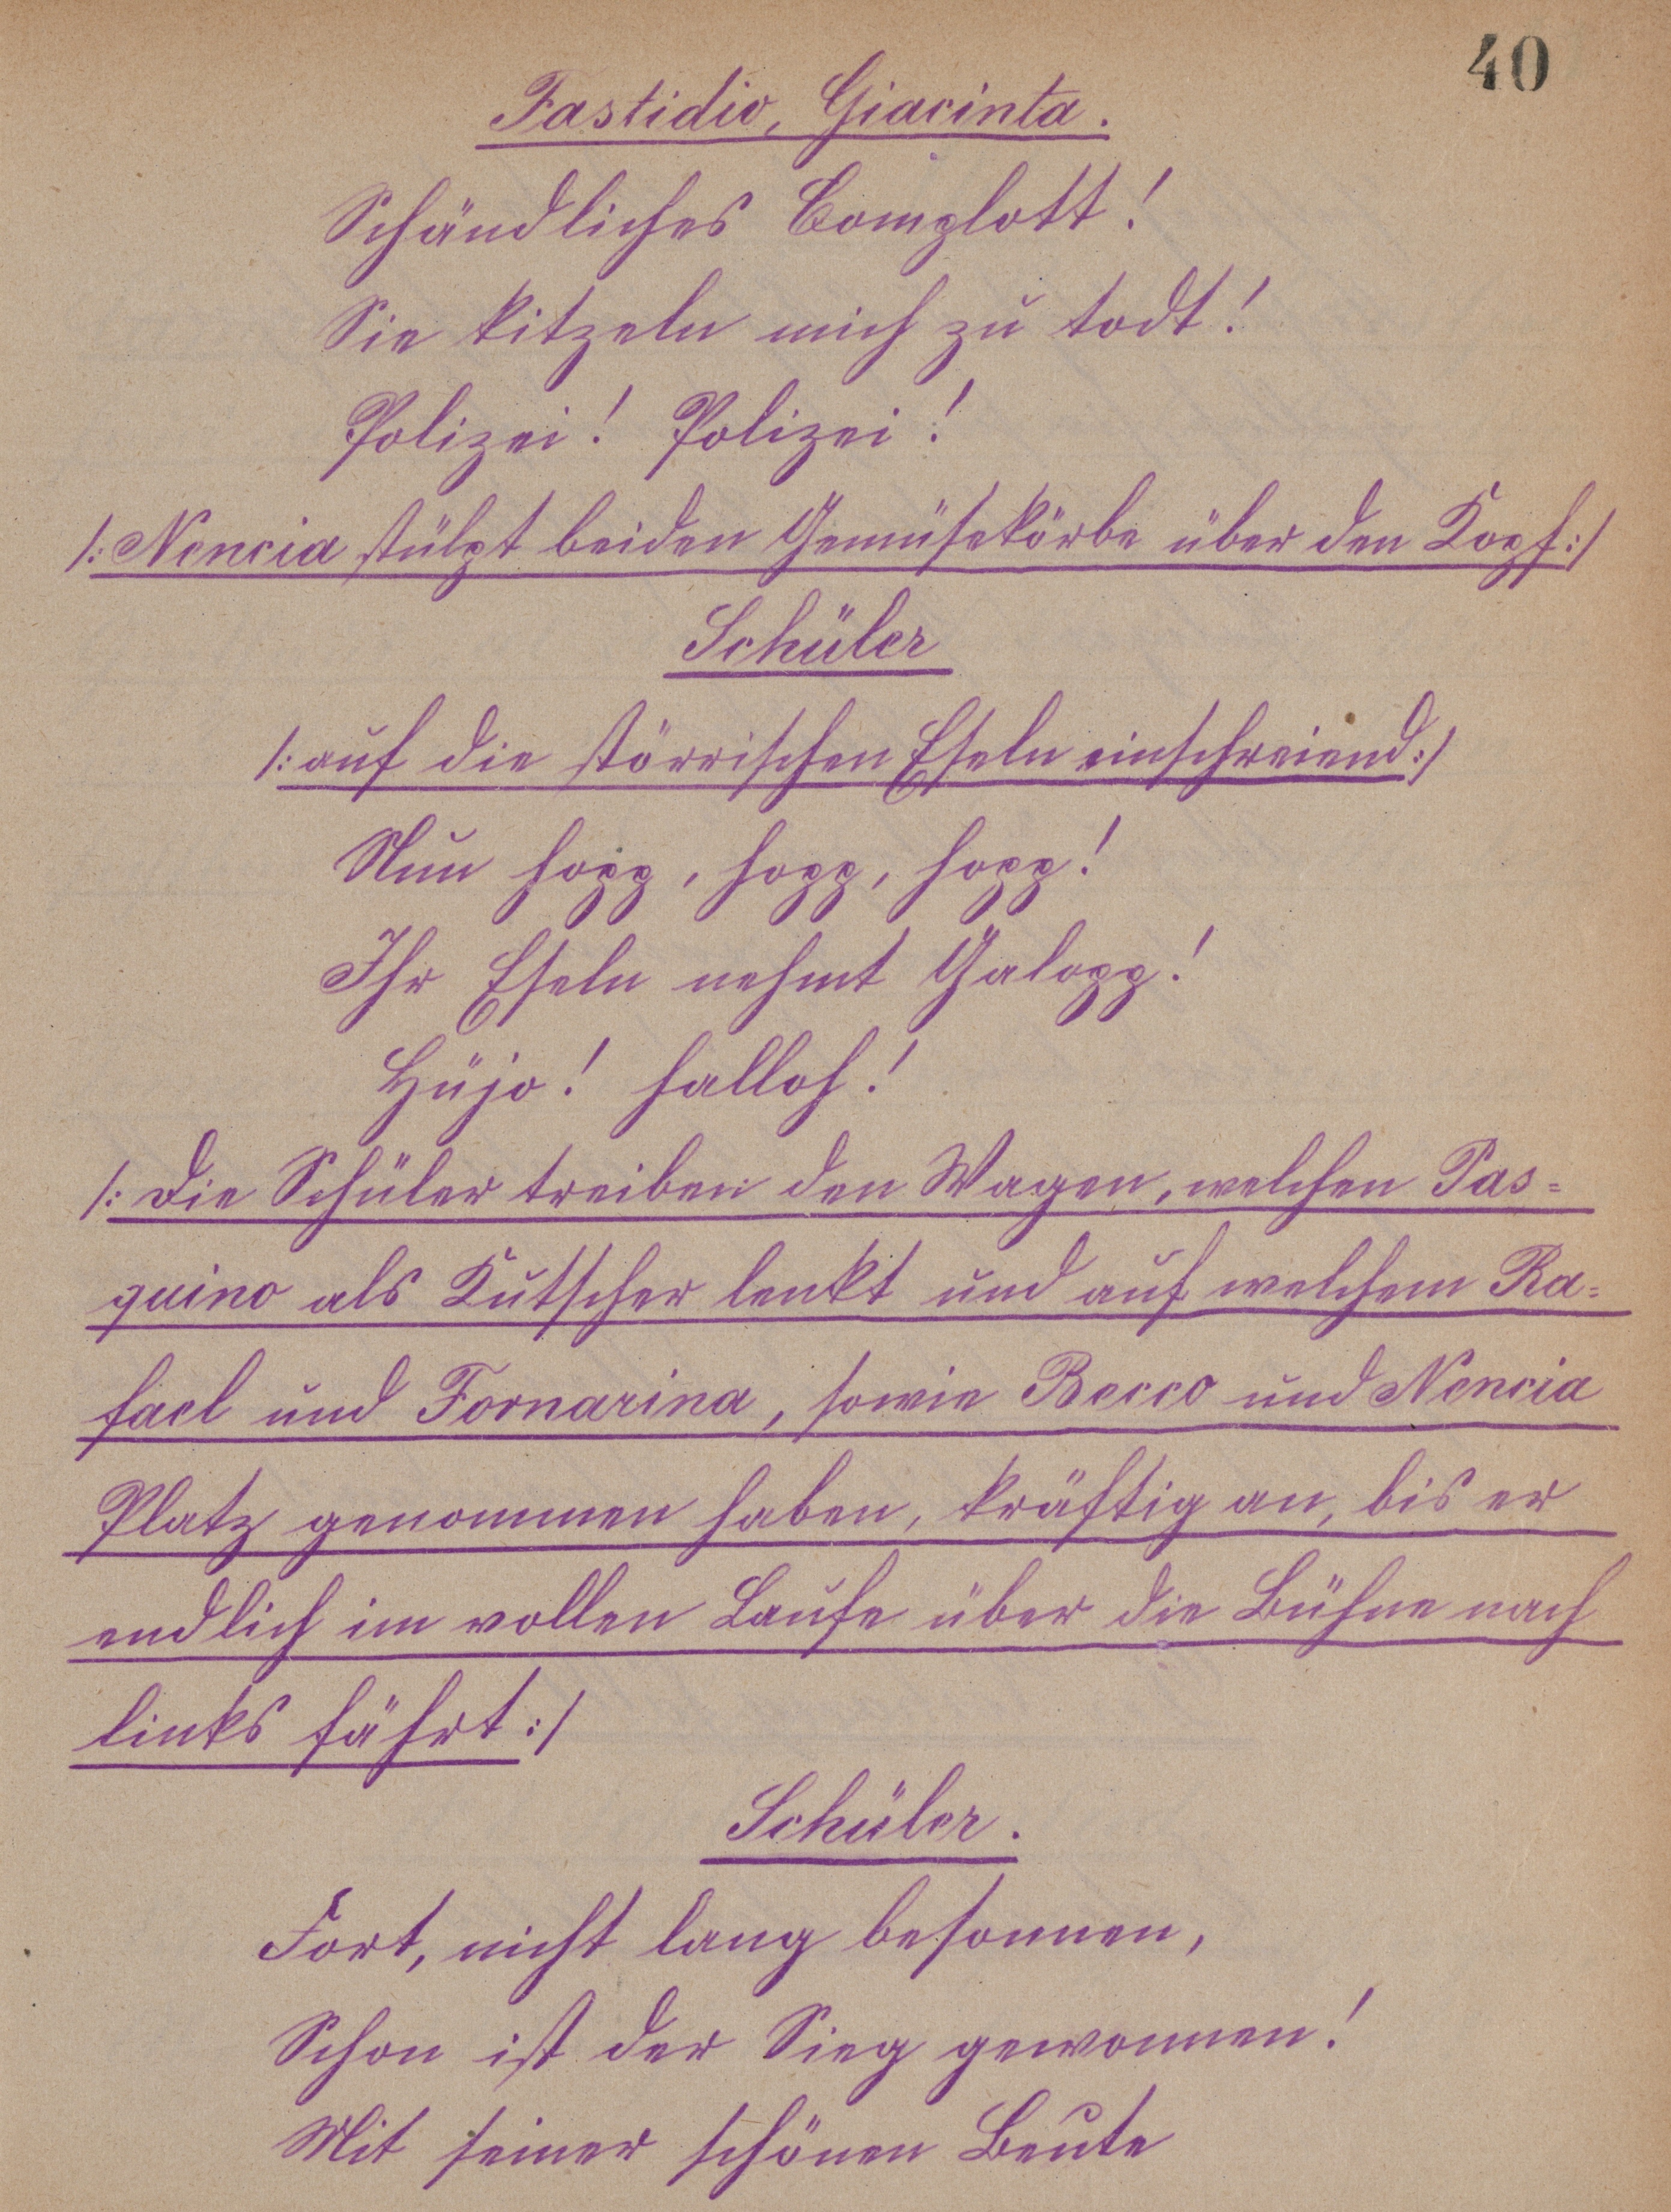 40
Fastidio, Giacinta.
Schändliches Complott!
Sie kitzeln mich zu todt!
Polizei! Polizei!
/: Nencia stülpt beiden Gemüsekörbe über den Kopf :/
Schüler
/: auf die störrischen Eseln einschreiend :/
Nun hopp, hopp, hopp!
Ihr Eseln nehmt Galopp!
Hüjo! halloh!
/: Die Schüler treiben den Wagen, welchen Pas=
quino als Kutscher lenkt und auf welchem Ra=
fael und Fornarina, sowie Becco und Nencia
Platz genommen haben, kräftig an, bis er
endlich im vollen Laufe über die Bühne nach
links fährt :/
Schüler.
Fort, nicht lang besonnen,
Schon ist der Sieg gewonnen!
Mit seiner schönen Beute